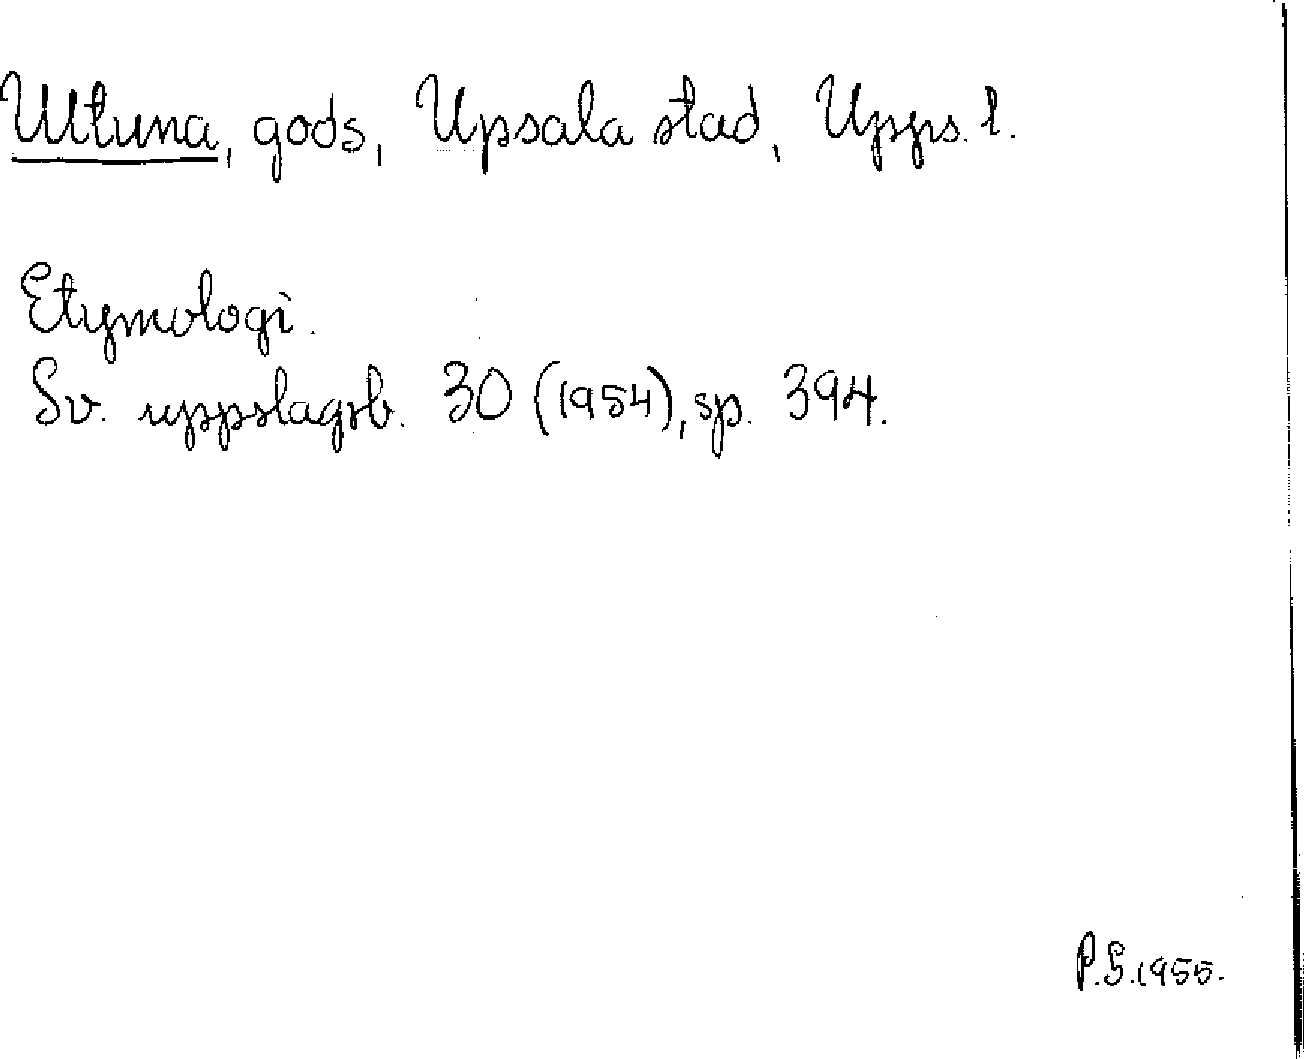 Ultuna, gods, Upsala stad, Upps. l.
Etymologi.
Sv. uppslagsb. 30 (1954), sp. 394.
P.G.1955.